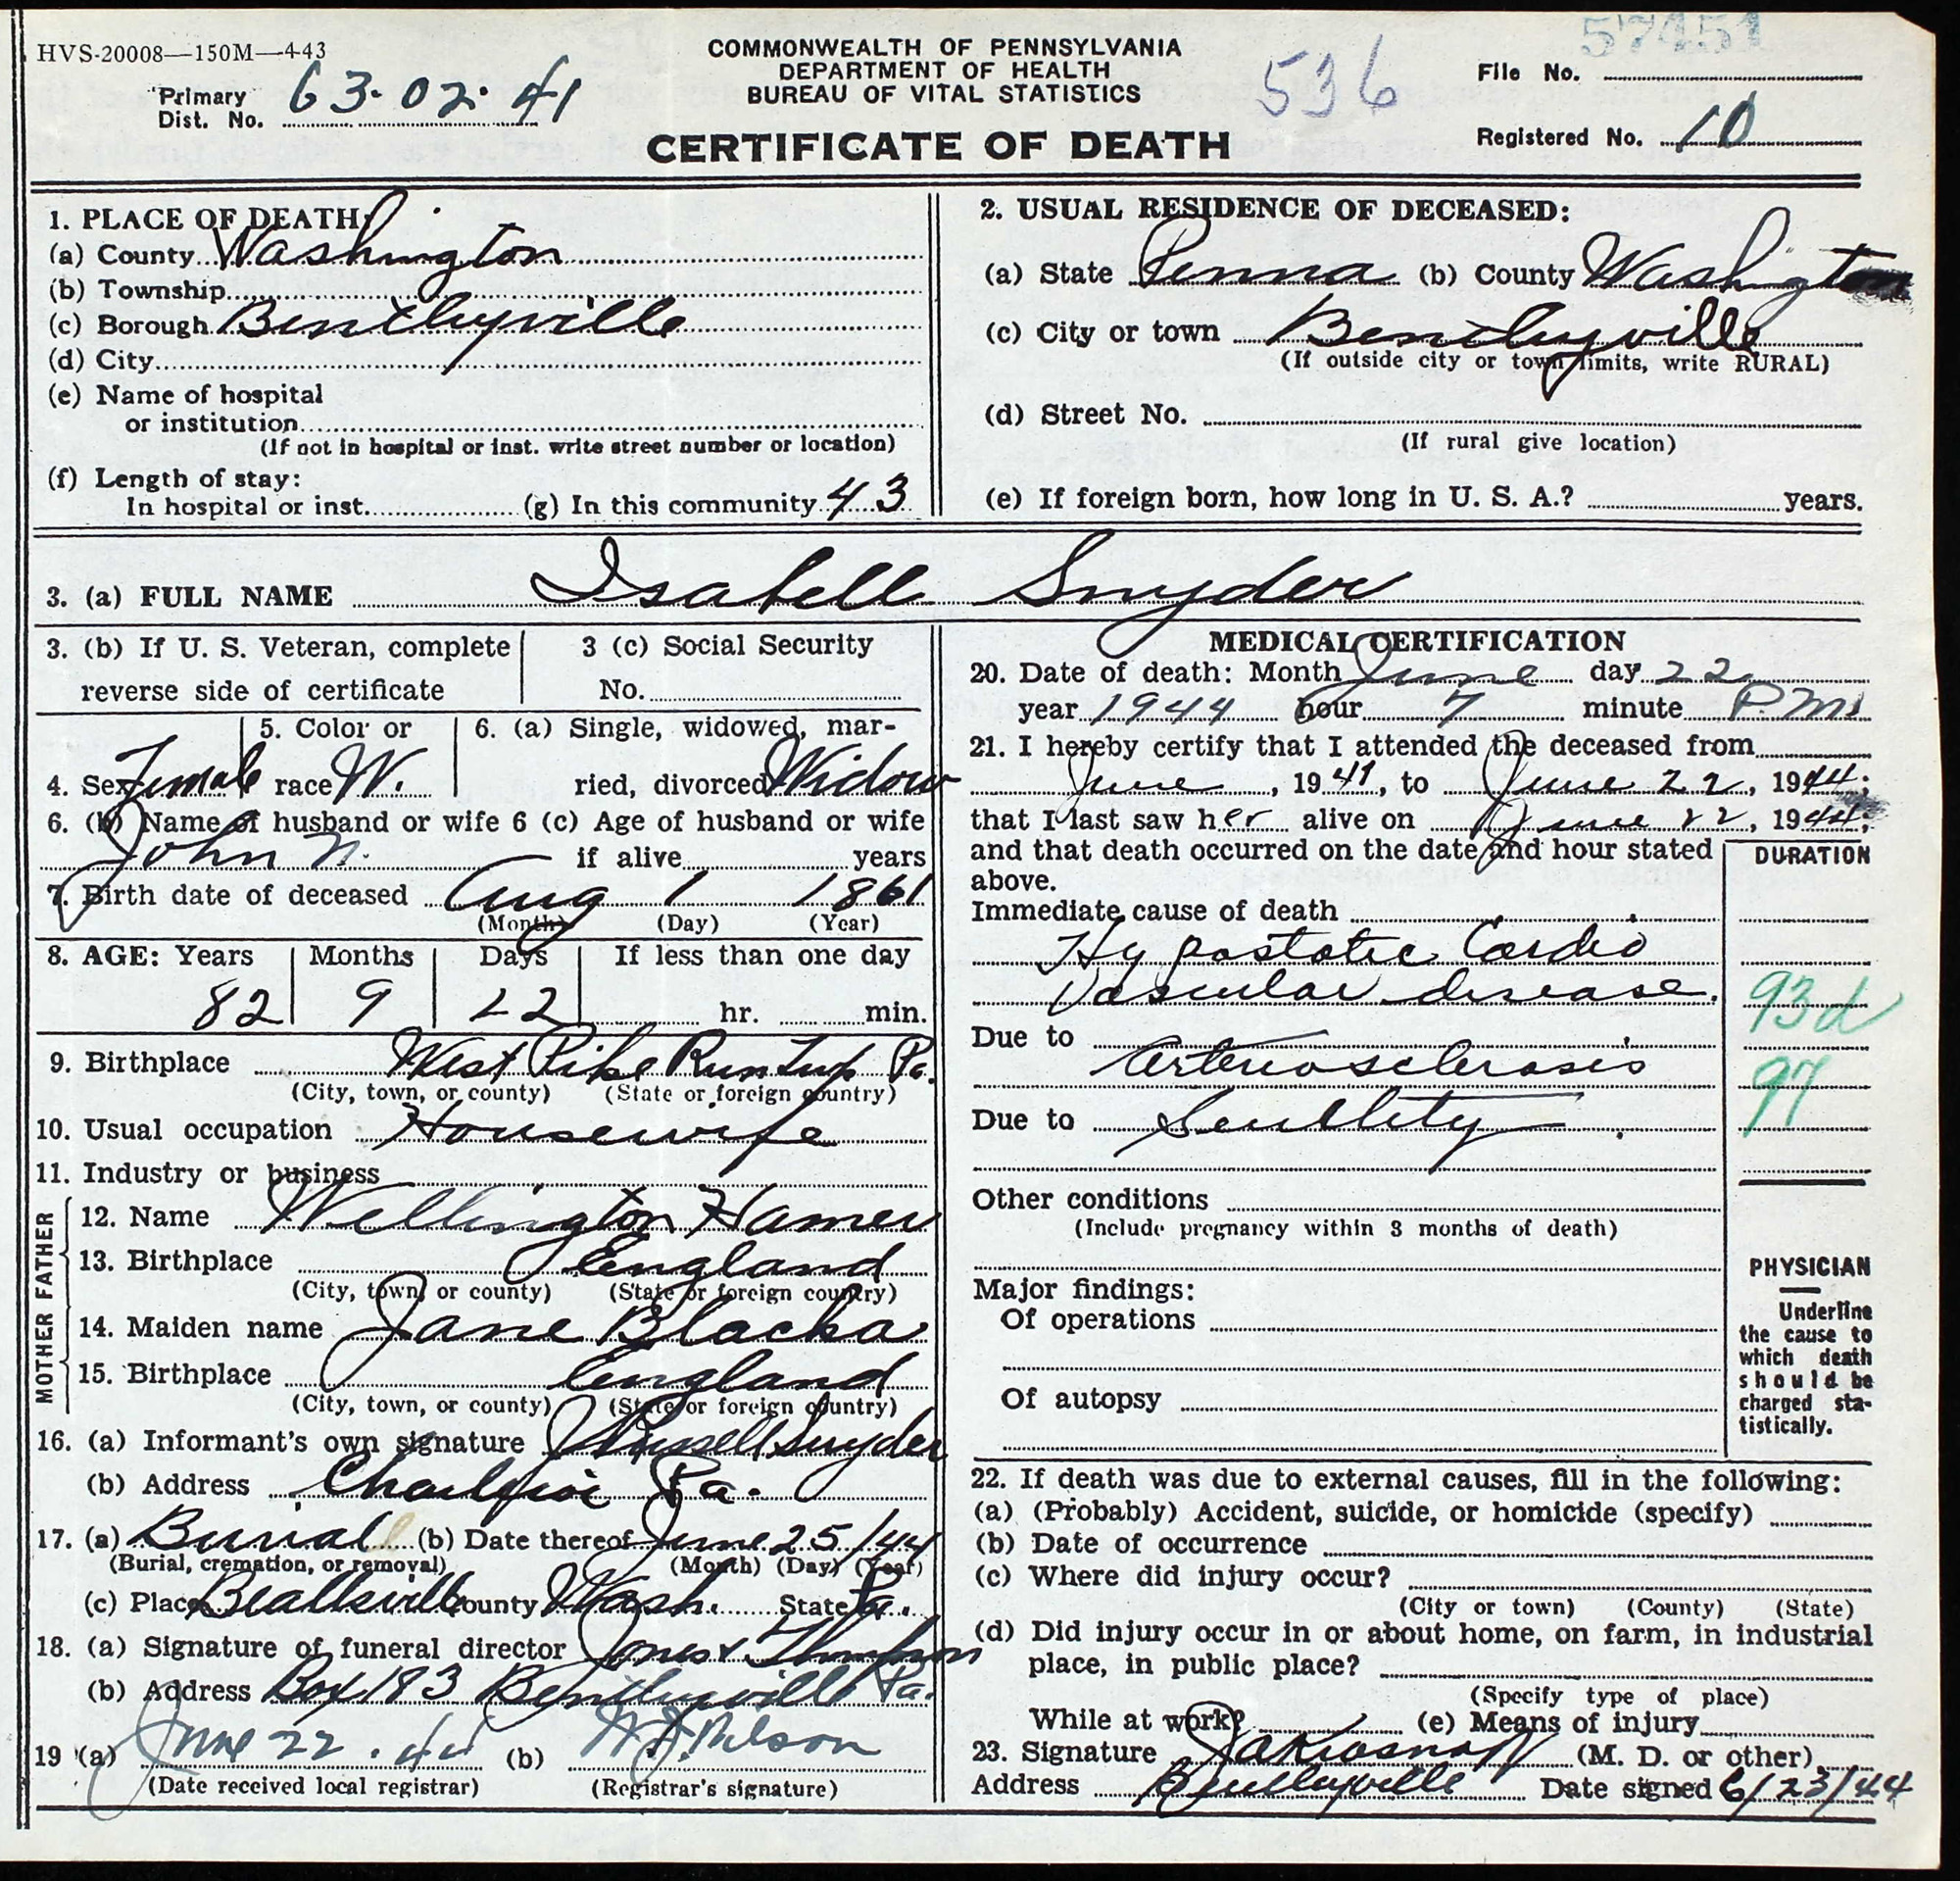 57451
HVS-20008—150M—4-43
COMMONWEALTH OF PENNSYLVANIA
DEPARTMENT OF HEALTH
BUREAU OF VITAL STATISTICS
CERTIFICATE OF DEATH
536
Primary Dist. No. 63-02-41
File No.
Registered No. 10
1. PLACE OF DEATH:
(a) County Washington
(b) Township
(c) Borough Bentleyville
(d) City
(e) Name of hospital
or institution
(If not in hospital or inst. write street number or location)
(f) Length of stay:
In hospital or inst. (g) In this community 43
2. USUAL RESIDENCE OF DECEASED:
(a) State Penna (b) County Washington
(c) City or town Bentleyville
(If outside city or town limits, write RURAL)
(d) Street No.
(If rural give location)
(e) If foreign born, how long in U. S. A.? years.
3. (a) FULL NAME Isabell Snyder
3. (b) If U. S. Veteran, complete
reverse side of certificate
3 (c) Social Security
No.
4. Sex Female
5. Color or
race W.
6. (a) Single, widowed, mar-
ried, divorced Widow
6. (b) Name of husband or wife
John N.
6 (c) Age of husband or wife
if alive years
7. Birth date of deceased Aug 1 1861
(Month) (Day) (Year)
8. AGE: Years Months Days If less than one day
82 9 22 hr. min.
9. Birthplace West Pike Run Twp Pa.
(City, town, or county) (State or foreign country)
10. Usual occupation Housewife
11. Industry or business
FATHER
12. Name Wellington Hamer
13. Birthplace England
(City, town, or county) (State or foreign country)
MOTHER
14. Maiden name Jane Blacka
15. Birthplace England
(City, town, or county) (State or foreign country)
16. (a) Informant's own signature Russell Snyder
(b) Address Pa.
17. (a) Burial (b) Date thereof June 25/44
(Burial, cremation, or removal) (Month) (Day) (Year)
(c) Place Beallsville County Wash. State Pa.
18. (a) Signature of funeral director Jones & Thompson
(b) Address Box 183 Bentleyville Pa.
19 (a) June 22.44 (b) Nelson
(Date received local registrar) (Registrar's signature)
MEDICAL CERTIFICATION
20. Date of death: Month June day 22
year 1944 hour 7 minute P.M.
21. I hereby certify that I attended the deceased from
June, 1941, to June 22, 1944;
that I last saw her alive on June 22, 1944;
and that death occurred on the date and hour stated
above.
DURATION
Immediate cause of death
Hypostotic Cardio
Vascular disease. 93d
Due to Arteriosclerosis
97
Due to Senility
Other conditions
(Include pregnancy within 3 months of death)
Major findings:
Of operations
Of autopsy
PHYSICIAN
Underline
the cause to
which death
should be
charged sta-
tistically.
22. If death was due to external causes, fill in the following:
(a) (Probably) Accident, suicide, or homicide (specify)
(b) Date of occurrence
(c) Where did injury occur?
(City or town) (County) (State)
(d) Did injury occur in or about home, on farm, in industrial
place, in public place?
(Specify type of place)
While at work? (e) Means of injury
23. Signature (M. D. or other)
Address Bentleyville Date signed 6/23/44